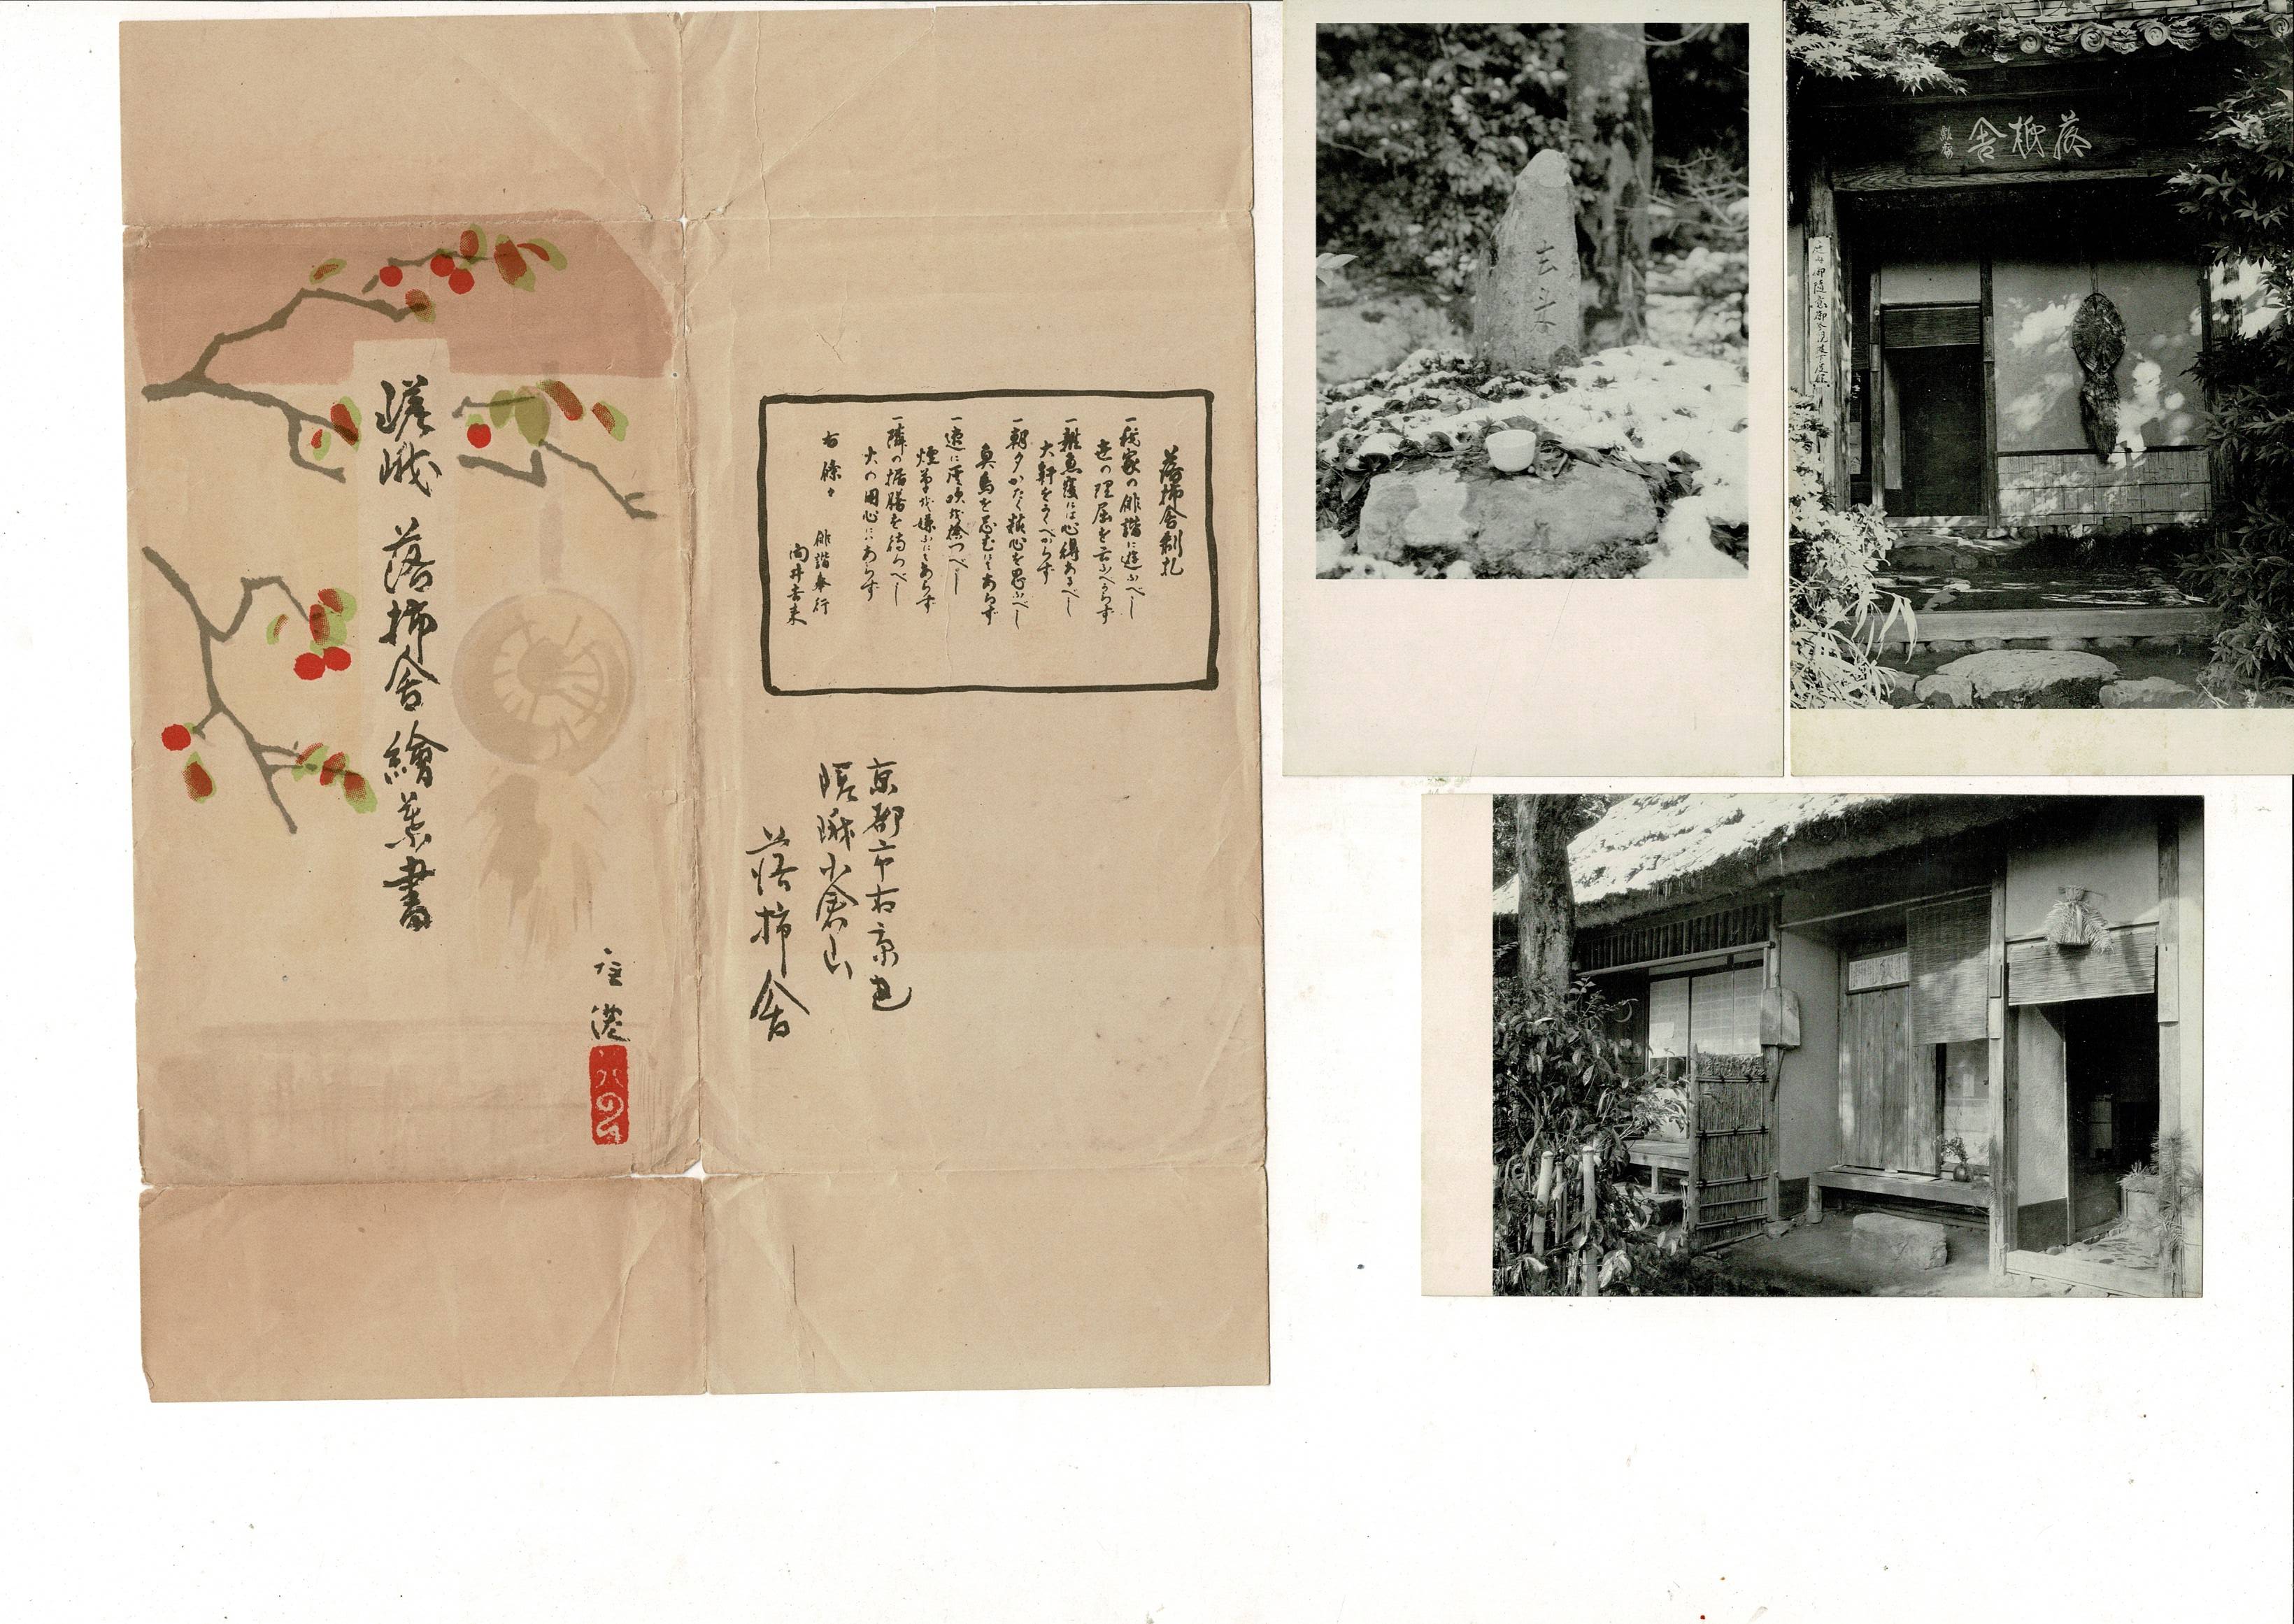 嵯峨 落柿舎 繪葉書
落柿舎制札
一我家の俳諧に遊ふへし
世の理屈を言ふへからす
一雑魚寝には心得あるへし
大鼾をかくへからす
一朝夕かたく精進を思ふへし
魚鳥を忌むにはあらす
一速に灰吹を捨つへし
煙草を嫌ふにはあらす
一隣の据膳を待つへし
火の用心にはあらす
右條々
俳諧奉行
向井去来
京都市右京区
嵯峨小倉山
落柿舎
去来
落柿舎